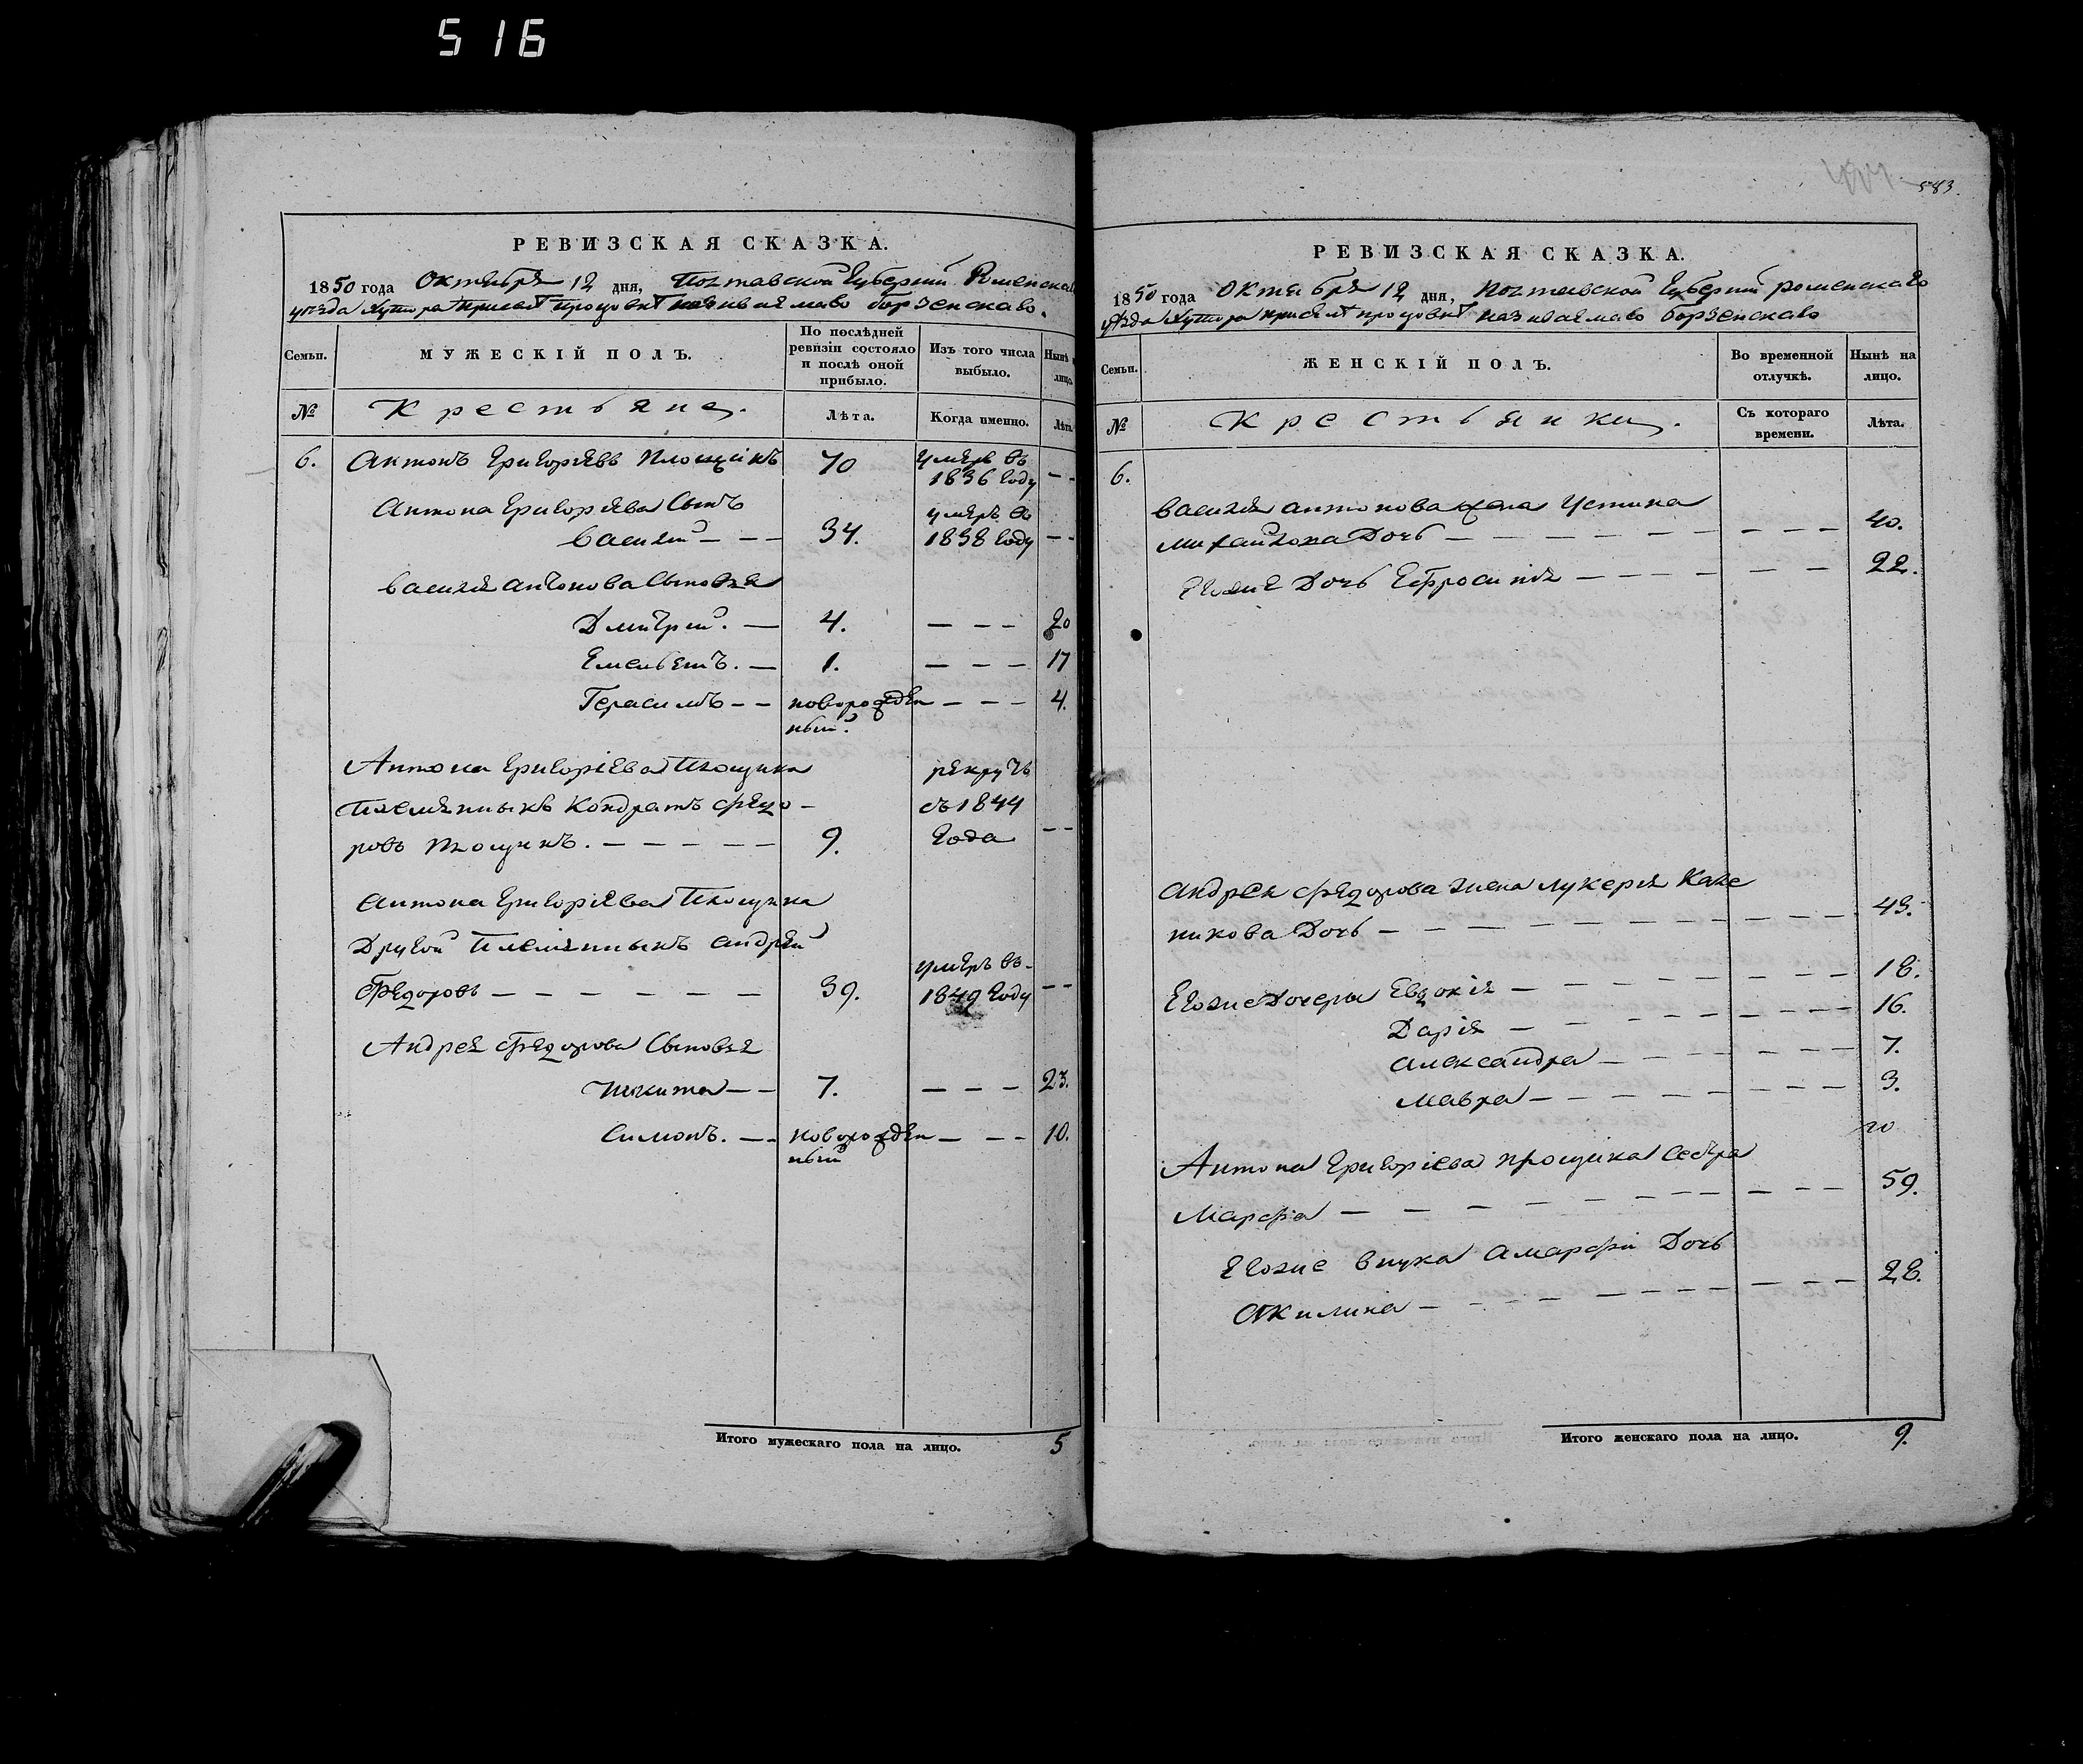 516
583.
РЕВИЗСКАЯ СКАЗКА.
1850 года Октября 12 дня, Полтавской Губернии Роменскаго
уезда Хутора называемаго Борзенскаго.
Семьи.
МУЖЕСКІЙ ПОЛЪ.
По послѣдней ревизіи состояло и послѣ оной прибыло.
Изъ того числа выбыло.
Нынѣ на лицо.
№
Крестьяне.
Лѣта.
Когда именно.
Лѣта.
6. Антонъ Григорьевъ Площикъ 70 умеръ въ 1836 году - -
Антона Григорьева Сынъ
Василий - - - 34. умеръ въ 1838 году - -
Василия Антонова Сыновья
Дмитрий. — 4. - - - 20
Емельянъ. — 1. - - - 17
Герасимъ - - новорожден - - - 4.
ный.
Антона Григоріева Площика рекрутъ
Племянныкъ Кондратъ Федо- съ 1844
ровъ Площикъ. - - - - - 9. года - -
Антона Григоріева Площика
Другой Племянныкъ Андрей
Федоровъ - - - - - - 39. умеръ въ 1849 году - -
Андрея Федорова Сыновья
Никита - - 7. - - - 23.
Симонъ. - - новорожден - - - 10.
ный
Итого мужескаго пола на лицо. 5
РЕВИЗСКАЯ СКАЗКА.
1850 года Октября 12 дня, Полтавской Губернии роменскаго
уезда Хутора называемаго борзенскаго
Семьи.
ЖЕНСКІЙ ПОЛЪ.
Во временной отлучкѣ.
Нынѣ на лицо.
№
Крестьянки.
Съ котораго времени.
Лѣта.
6.
Василия антонова жена Устина
Михайлова Дочь - - - - - - - - - 40.
Еголие Дочь Ефросиния - - - - - - 22.
Андрея Федорова жена лукерия Кале
никова Дочь - - - - - - - - - 43.
Еголие Дочеры Евдокія - - - - - - - 18.
Дарія - - - - - - - - 16.
Александра - - - - - - - 7.
Мавра - - - - - - - - 3.
Антона Григоріева прощика Сестра
Марфа - - - - - - - - - - - 59.
Еголие внука Амарфи Дочь
Акилина - - - - - - - - - - - 28.
Итого женскаго пола на лицо. 9.